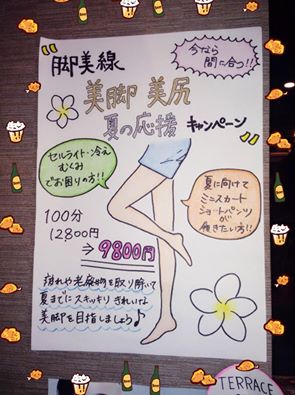 脚美線
今なら
間に合う!!
美脚 美尻
夏の応援 キャンペーン
セルライト・冷え
むくみ
でお困りの方!!
夏に向けて
ミニスカート
ショートパンツが
履きたい方!!
100分
12800円
→9800円
疲れや老廃物を取り除いて
夏までにスッキリきれいな
美脚を目指しましょう♪
TERRACE